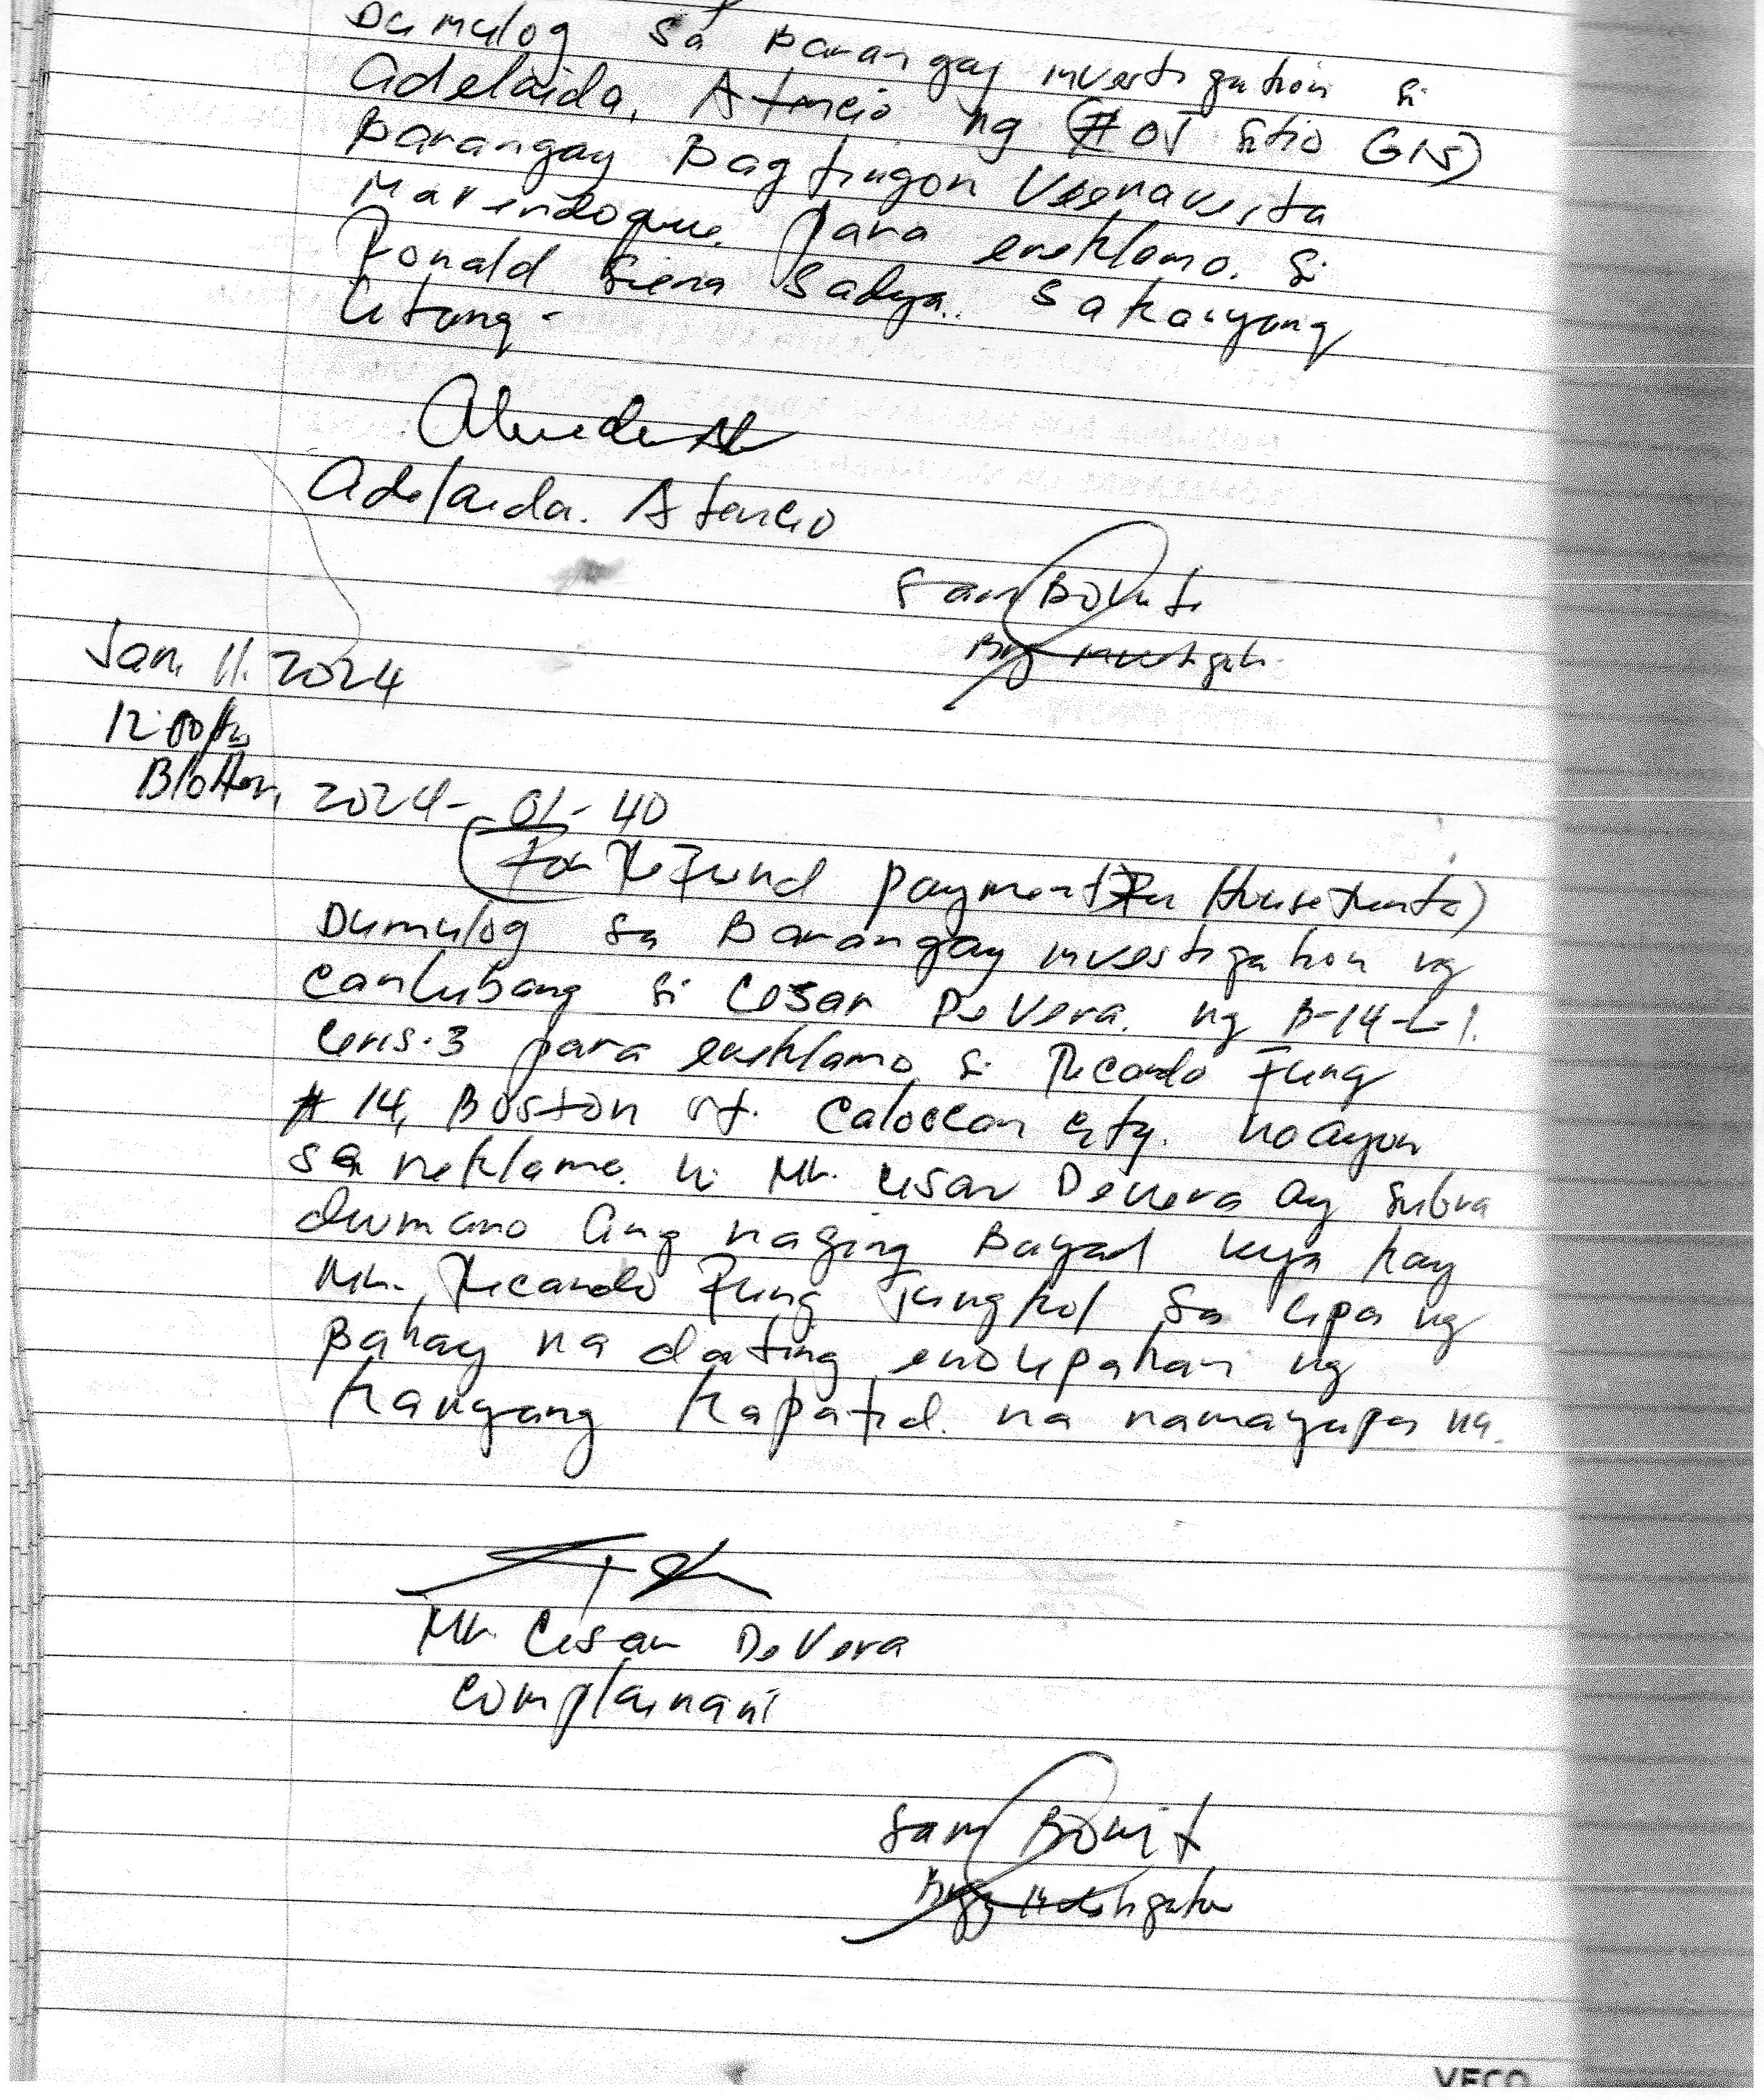 Dumulog sa Barangay investigation si
Adelaida. Atencio ng (# 05 Sitio GNS)
Barangay Bagtingon Veenavesta
Marendoque. para ereklamo. Si
Ronald Siena Sadya.. sa kaiyang
Utang -
Adelaida. Atencio
Sam Bonit
Brgy investigator
Jan. 11. 2024
12:00 PM
Blotter, 2024- 01- 40
(For Refund payment For House Renta)
Dumulog sa Barangay investigation ng
Canlubang si Cesar De Vera. ng B-14-L-1.
Ceris.3 para ereklamo si Ricardo Fung
# 14, Boston st. Caloocan City. Naayon
sa reklamo. ni Mr. Cesar Devera ay subra
dumano ang naging Bayad nya kay
Mr. Ricardo Fung Tungkol sa Upa ng
Bahay na dating enoupahan ng
kanyang kapatid. na namayapa na.
Mr. Cesar De Vera
complainant
Sam Bonit
Brgy investigator
VECO